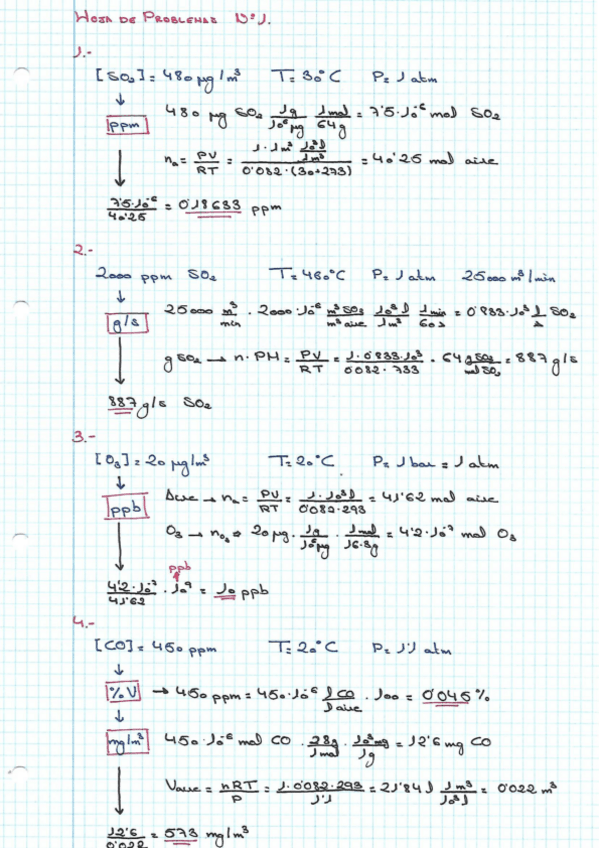 HOJA DE PROBLEMAS Nº1.
1.-
[SO₂] = 480 µg/m³ T = 30°C P = 1 atm
↓
ppm 480 µg SO₂ · 1g/10⁶µg · 1mol/64g = 7'5·10⁻⁶ mol SO₂
↓ nₐ = PV/RT = (1·1m³ · 10³l/1m³)/(0'082·(30+273)) = 40'25 mol aire
7'5·10⁻⁶/40'25 = 0'18633 ppm
2.-
2000 ppm SO₂ T = 460°C P = 1 atm 25000 m³/min
↓
g/s 25000 m³/min · 2000·10⁻⁶ m³SO₂/m³aire · 10³l/1m³ · 1min/60s = 0'833·10³ l/s SO₂
↓ g SO₂ → n·PM = PV/RT = 1·0'833·10³/0'082·733 · 64 gSO₂/molSO₂ = 887 g/s
887 g/s SO₂
3.-
[O₃] = 20 µg/m³ T = 20°C P = 1 bar = 1 atm
↓
ppb Aire → nₐ = PV/RT = 1·10³l/0'082·293 = 41'62 mol aire
↓ O₃ → n₀₃ ⇒ 20µg · 1g/10⁶µg · 1mol/16·3g = 4'2·10⁻⁷ mol O₃
ppb
4'2·10⁻⁷/41'62 · 10⁹ = 10 ppb
4.-
[CO] = 450 ppm T = 20°C P = 1'1 atm
↓
%V → 450 ppm = 450·10⁻⁶ l CO/l aire · 100 = 0'045 %
↓
mg/m³ 450·10⁻⁶ mol CO · 28g/1mol · 10³mg/1g = 12'6 mg CO
↓ Vaire = nRT/P = 1·0'082·293/1'1 = 21'84 l · 1m³/10³l = 0'022 m³
12'6/0'022 = 573 mg/m³